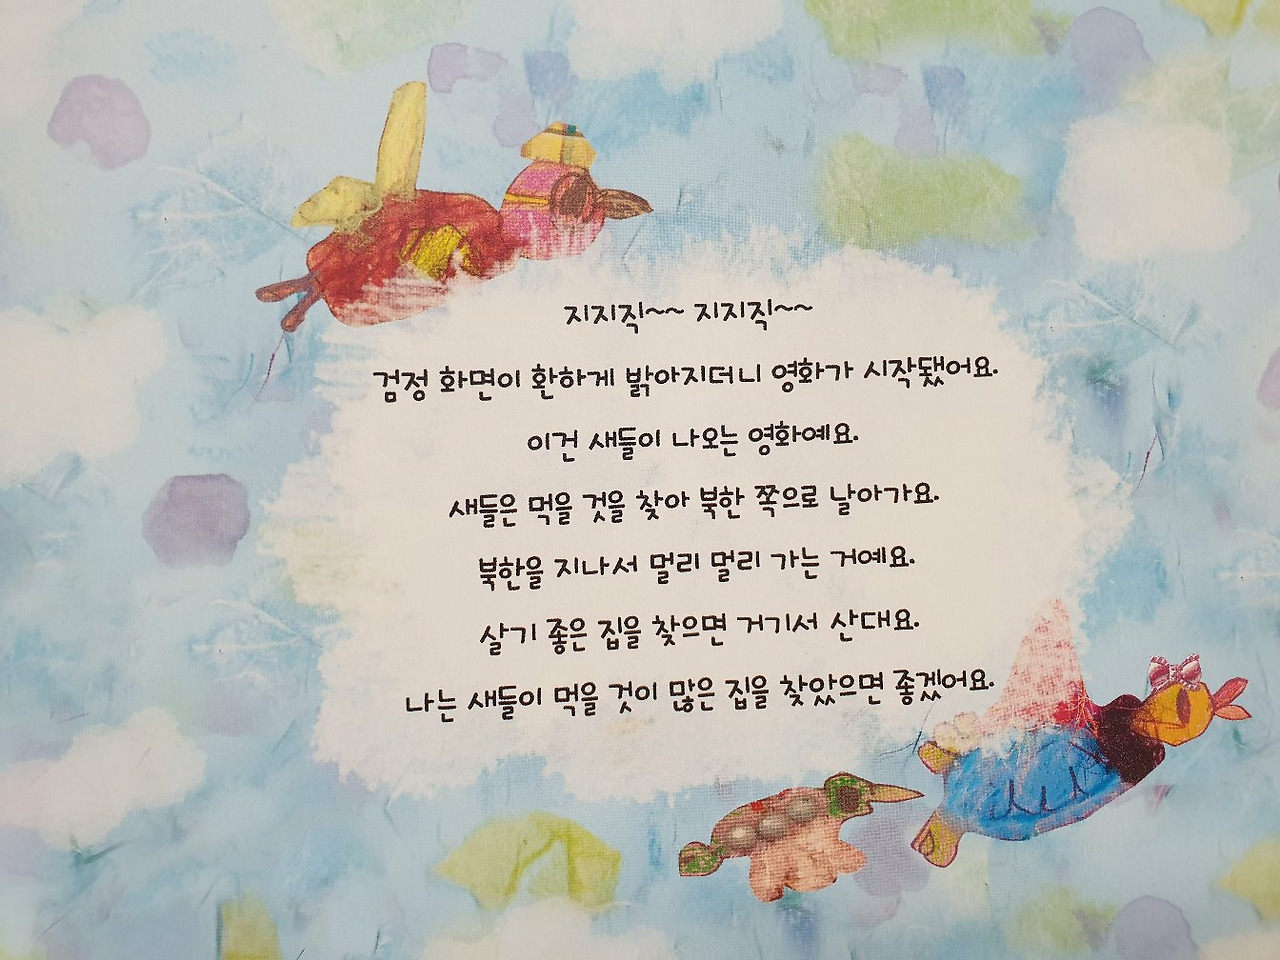 지지직~~ 지지직~~
검정 화면이 환하게 밝아지더니 영화가 시작됐어요.
이건 새들이 나오는 영화예요.
새들은 먹을 것을 찾아 북한 쪽으로 날아가요.
북한을 지나서 멀리 멀리 가는 거예요.
살기 좋은 집을 찾으면 거기서 산대요.
나는 새들이 먹을 것이 많은 집을 찾았으면 좋겠어요.